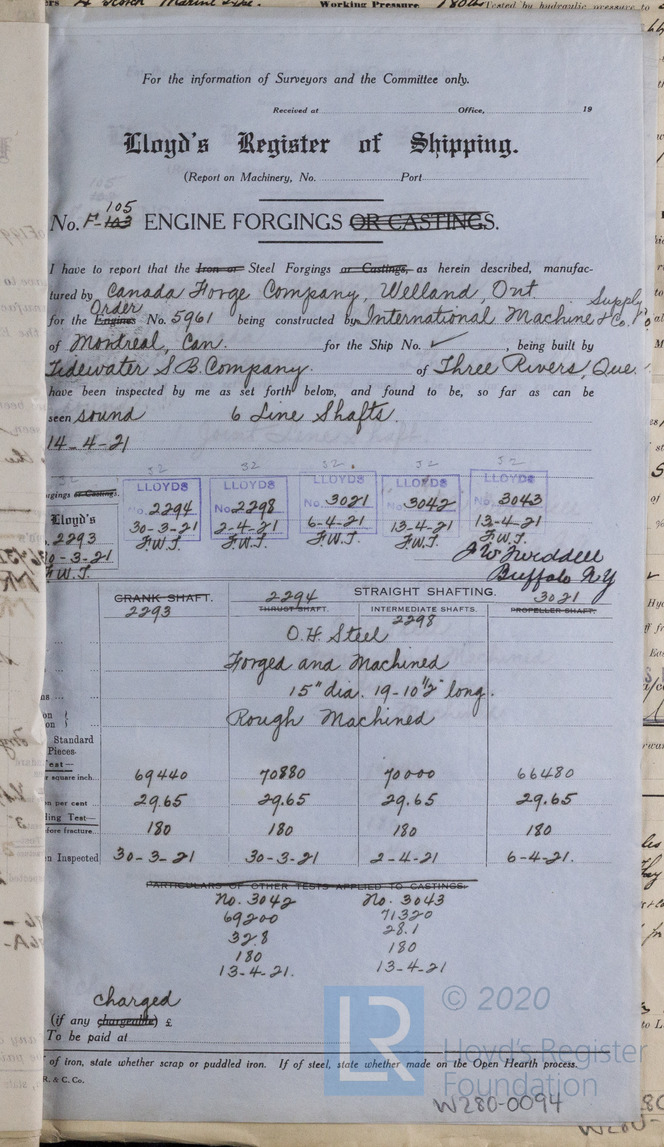 Working Pressure 180 lb Tested by hydraulic pressure to
For the information of Surveyors and the Committee only.
Received at Office, 19
Lloyd's Register of Shipping.
(Report on Machinery, No. Port
105
105
No. F-103 ENGINE FORGINGS OR CASTINGS.
I have to report that the Iron or Steel Forgings or Castings, as herein described, manufac-
tured by Canada Forge Company, Welland, Ont.
Order Supply
for the Engines No. 5961 being constructed by International Machine & Co.
of Montreal, Can. for the Ship No. ✓, being built by
Tidewater S.B. Company. of Three Rivers, Que.
have been inspected by me as set forth below, and found to be, so far as can be
seen sound 6 Line Shafts.
14-4-21
52 52 52 52 52 52
orgings or Castings.
LLOYDS LLOYDS LLOYDS LLOYDS LLOYDS
Lloyd's No. 2294 No. 2298 No. 3021 No. 3042 No. 3043
2293 30-3-21 2-4-21 6-4-21 13-4-21 13-4-21
30-3-21 F.W.T. F.W.T. F.W.T. F.W.T. F.W.T.
F.W.T.
Buffalo N.Y
CRANK SHAFT. 2294 STRAIGHT SHAFTING. 3021
2293 THRUST SHAFT. INTERMEDIATE SHAFTS. PROPELLER SHAFT.
2298
O.H. Steel
Forged and Machined
15" dia. 19-10½" long.
Rough Machined
Standard
Pieces.
est—
r square inch... 69440 70880 70000 66480
n per cent 29.65 29.65 29.65 29.65
ding Test—
fore fracture... 180 180 180 180
n Inspected 30-3-21 30-3-21 2-4-21 6-4-21.
PARTICULARS OF OTHER TESTS APPLIED TO CASTINGS.
No. 3042 No. 3043
69200 71320
32.8 28.1
180 180
13-4-21. 13-4-21
charged
(if any chargeable) £
To be paid at
of iron, state whether scrap or puddled iron. If of steel, state whether made on the Open Hearth process.
R. & C. Co.
LR
© 2020
Lloyd's Register
Foundation
W280-0094